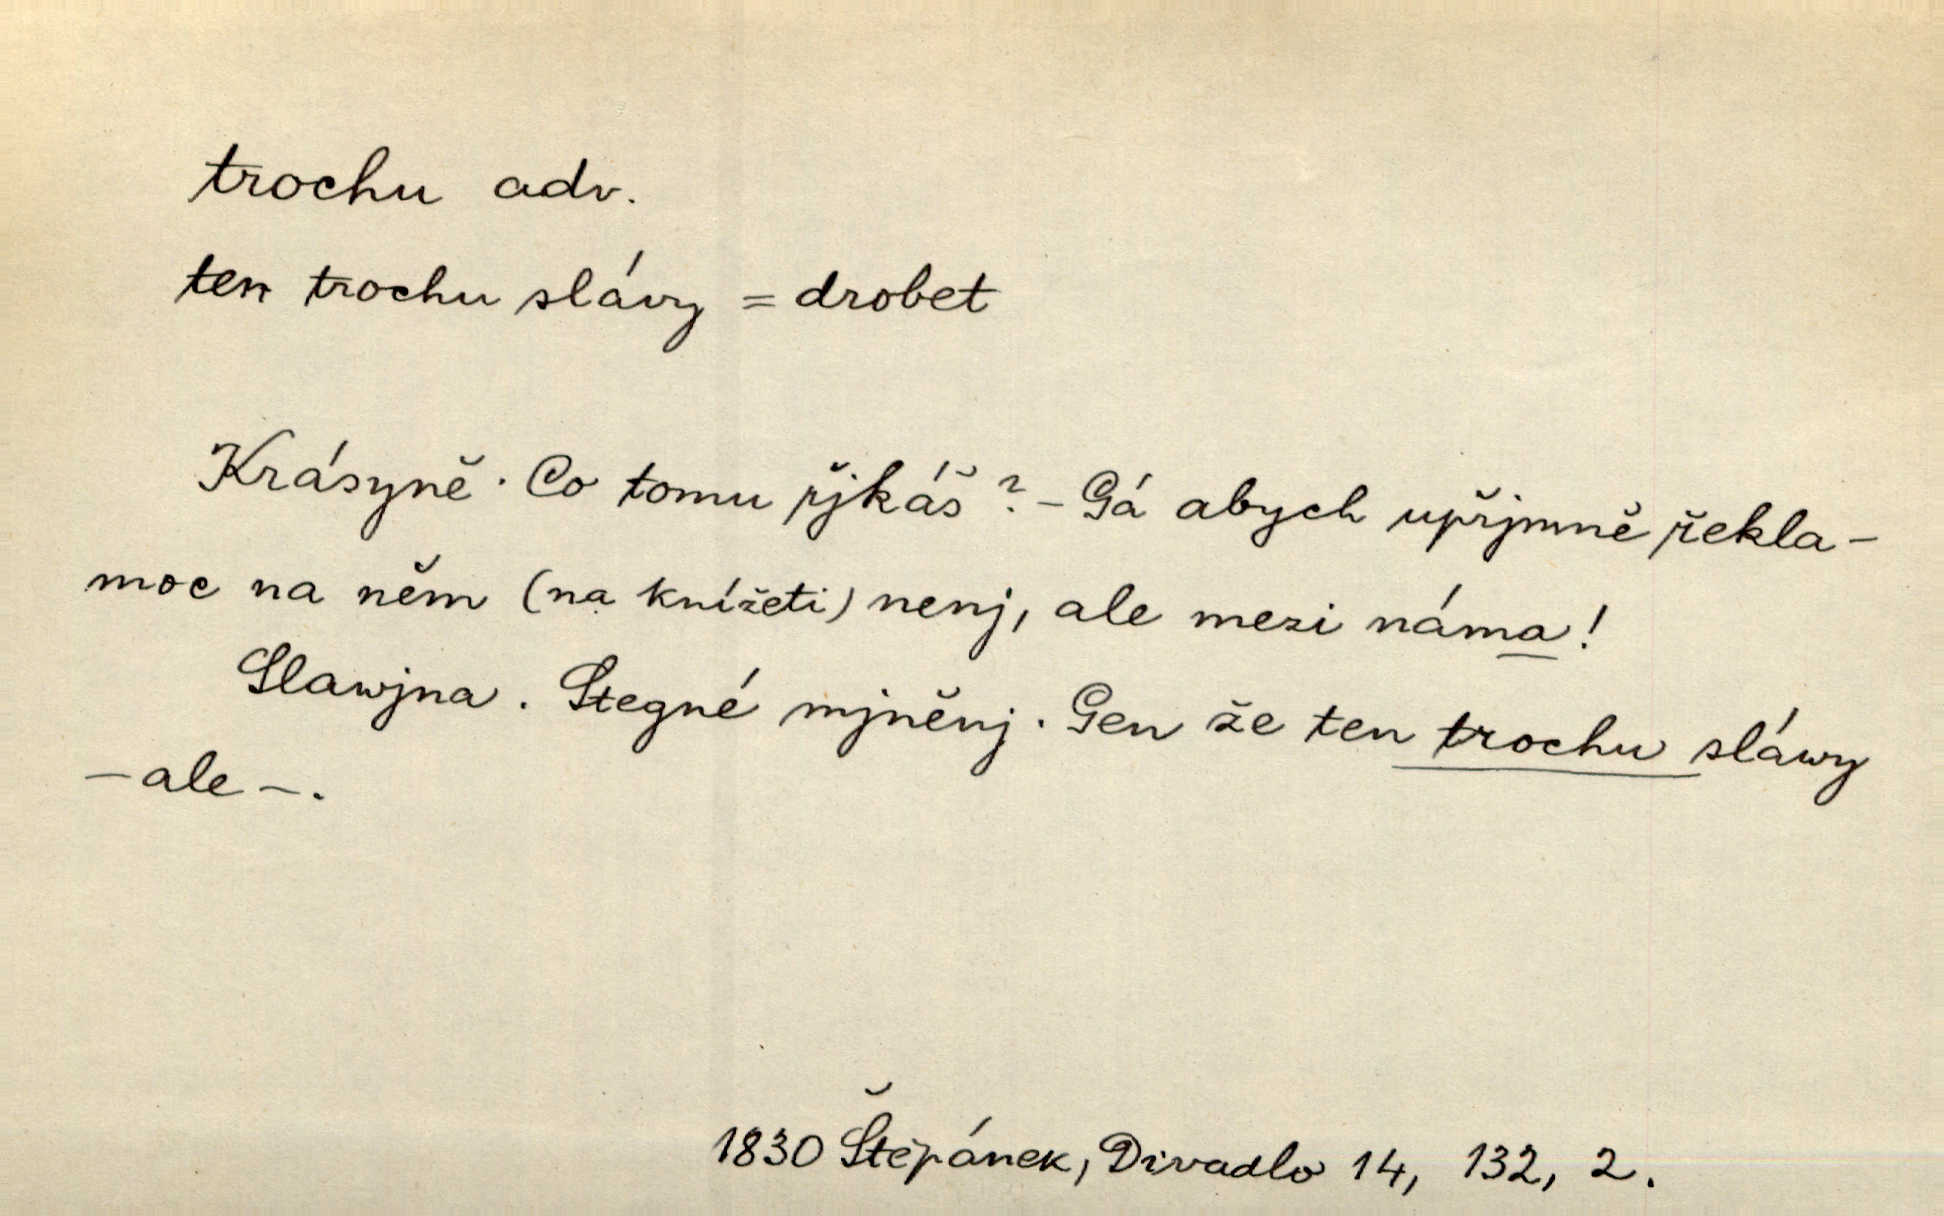 trochu adv.
ten trochu slávy = drobet
Krásyně. Co tomu řjkáš? – Gá abych upřjmně řekla –
moc na něm (na knížeti) nenj, ale mezi náma!
Slawjna. Stegné mjněnj. Gen že ten trochu sláwy
– ale –.
1830 Štěpánek, Divadlo 14, 132, 2.